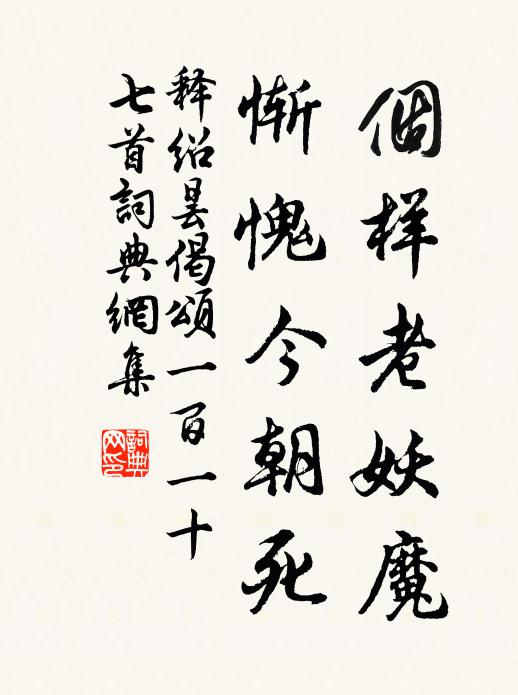 個样老妖魔
慚愧今朝死
释紹昙偈頌一百一十
七首詞典網集
詞典
网印